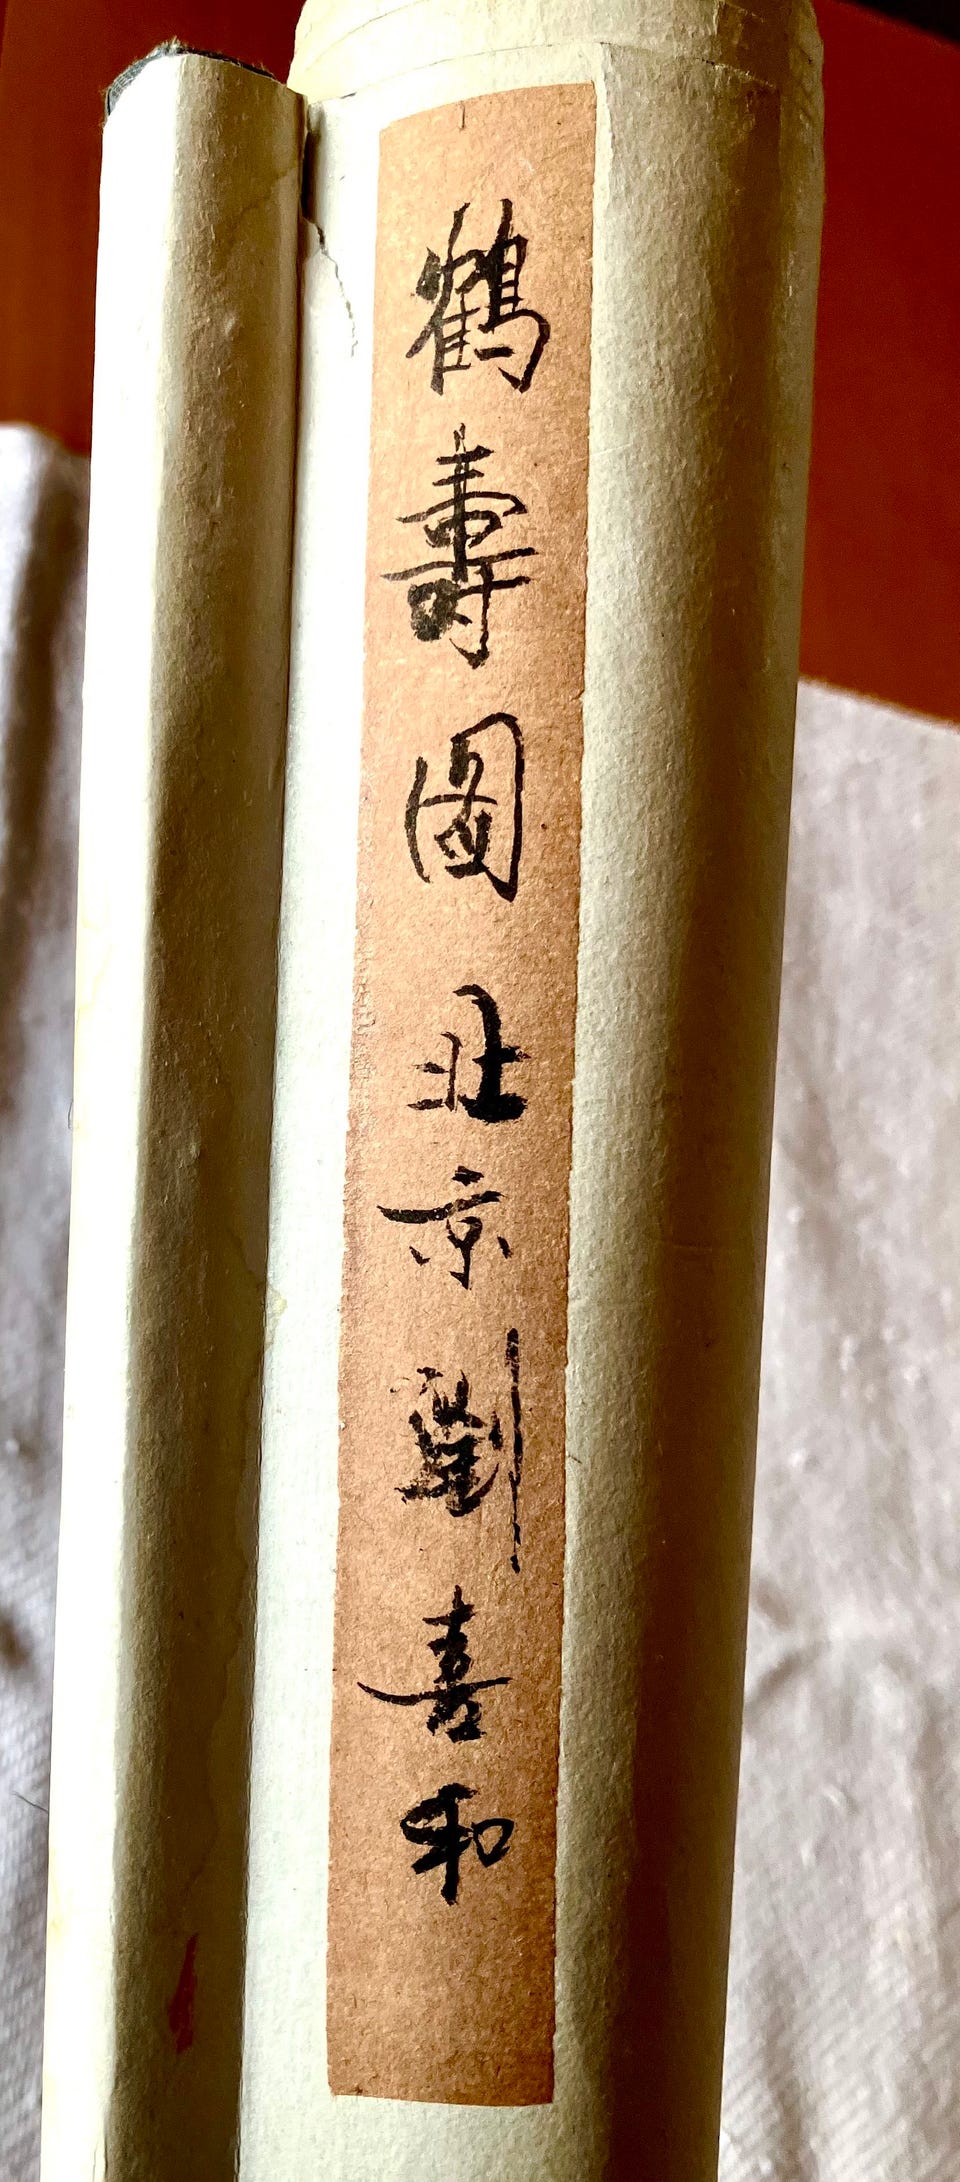 鶴壽圖北京劉喜和